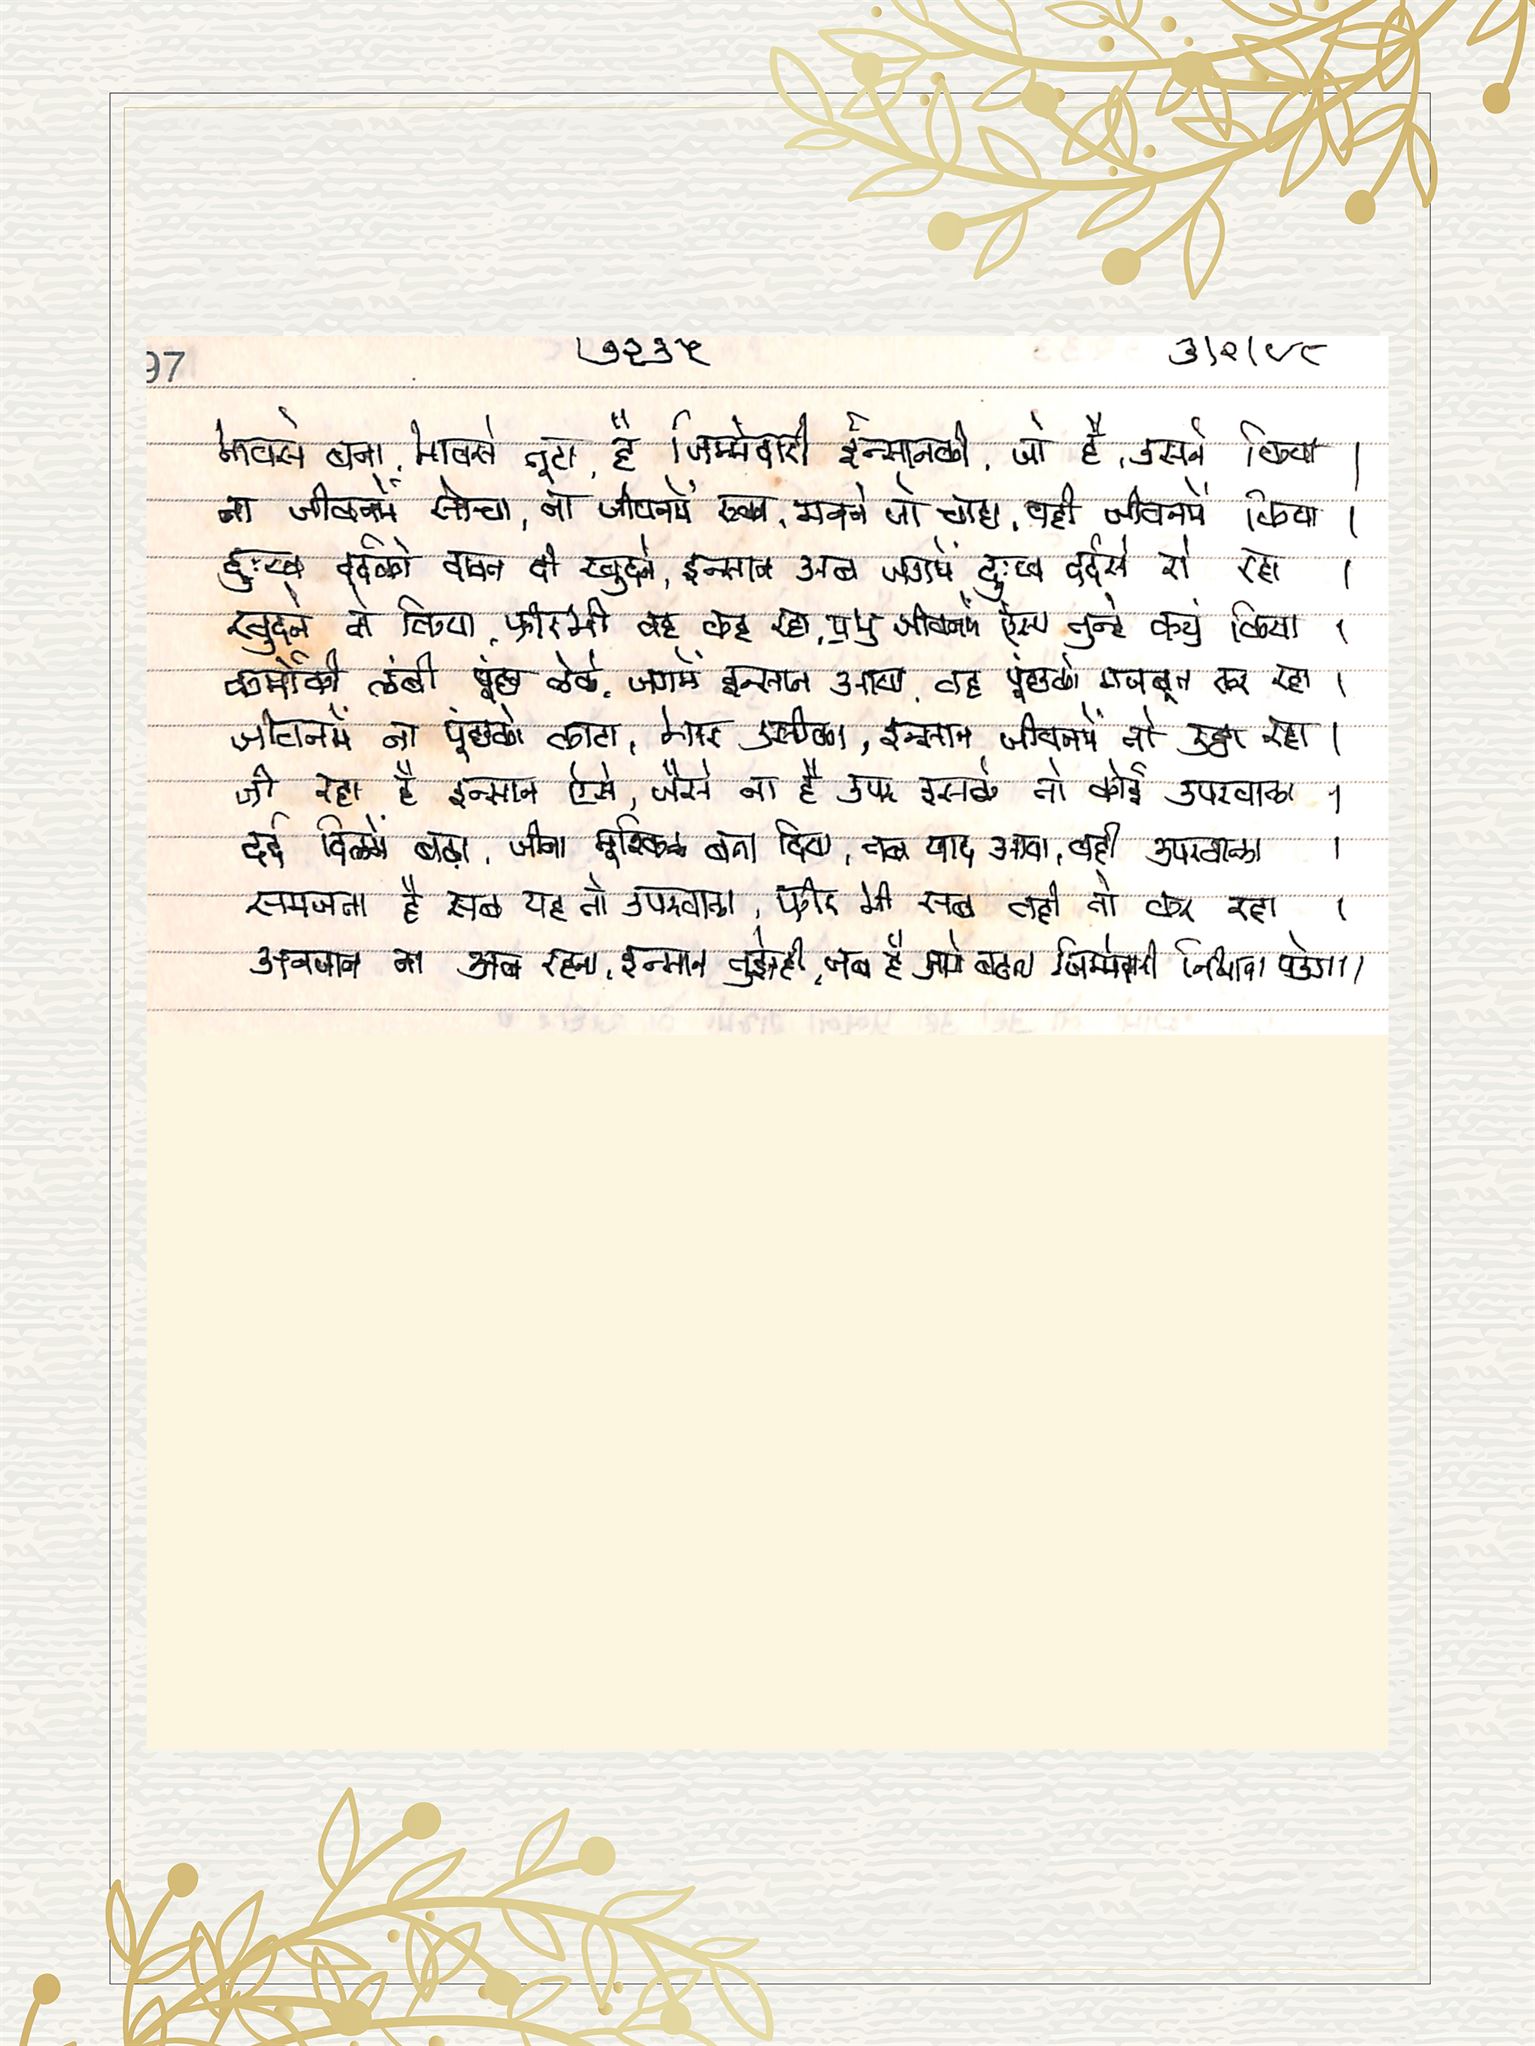 97 ७२३५ ३/२/९८
भावसे बना, भावसे तूटा, है जिम्मेवारी ईन्सानकी, जो है, उसने किया ।
ना जीवनमें सोचा, ना जीवनमें रूका, मनने जो चाहा, वही जीवनमें किया ।
दुःख दर्दको दावत दी खुदने, इन्सान अब जगमें दुःख दर्दसे रो रहा ।
खुदने तो किया, फीरभी वह कह रहा, प्रभु जीवनमें ऐसा तुन्हे कयुं किया ।
कर्मोकी लंबी पूंछ लेके, जगमें इन्सान आया, वह पूंछको मजबूत कर रहा ।
जीवनमें ना पूंछको काटा, भार उसीका, इन्सान जीवनमें तो उठा रहा ।
जी रहा है इन्सान ऐसे, जैसे ना है उपर इसके तो कोई उपरवाला ।
दर्द दिलमें बढ़ा, जीना मुश्किल बना दिया, तब याद आया, वही उपरवाला ।
समजता है सब यह तो उपरवाला, फीर भी सब वही तो कर रहा ।
अनजान ना अब रहना, इन्सान तुझेही, जब है आगे बढना जिम्मेवारी निभाना पडेगा।